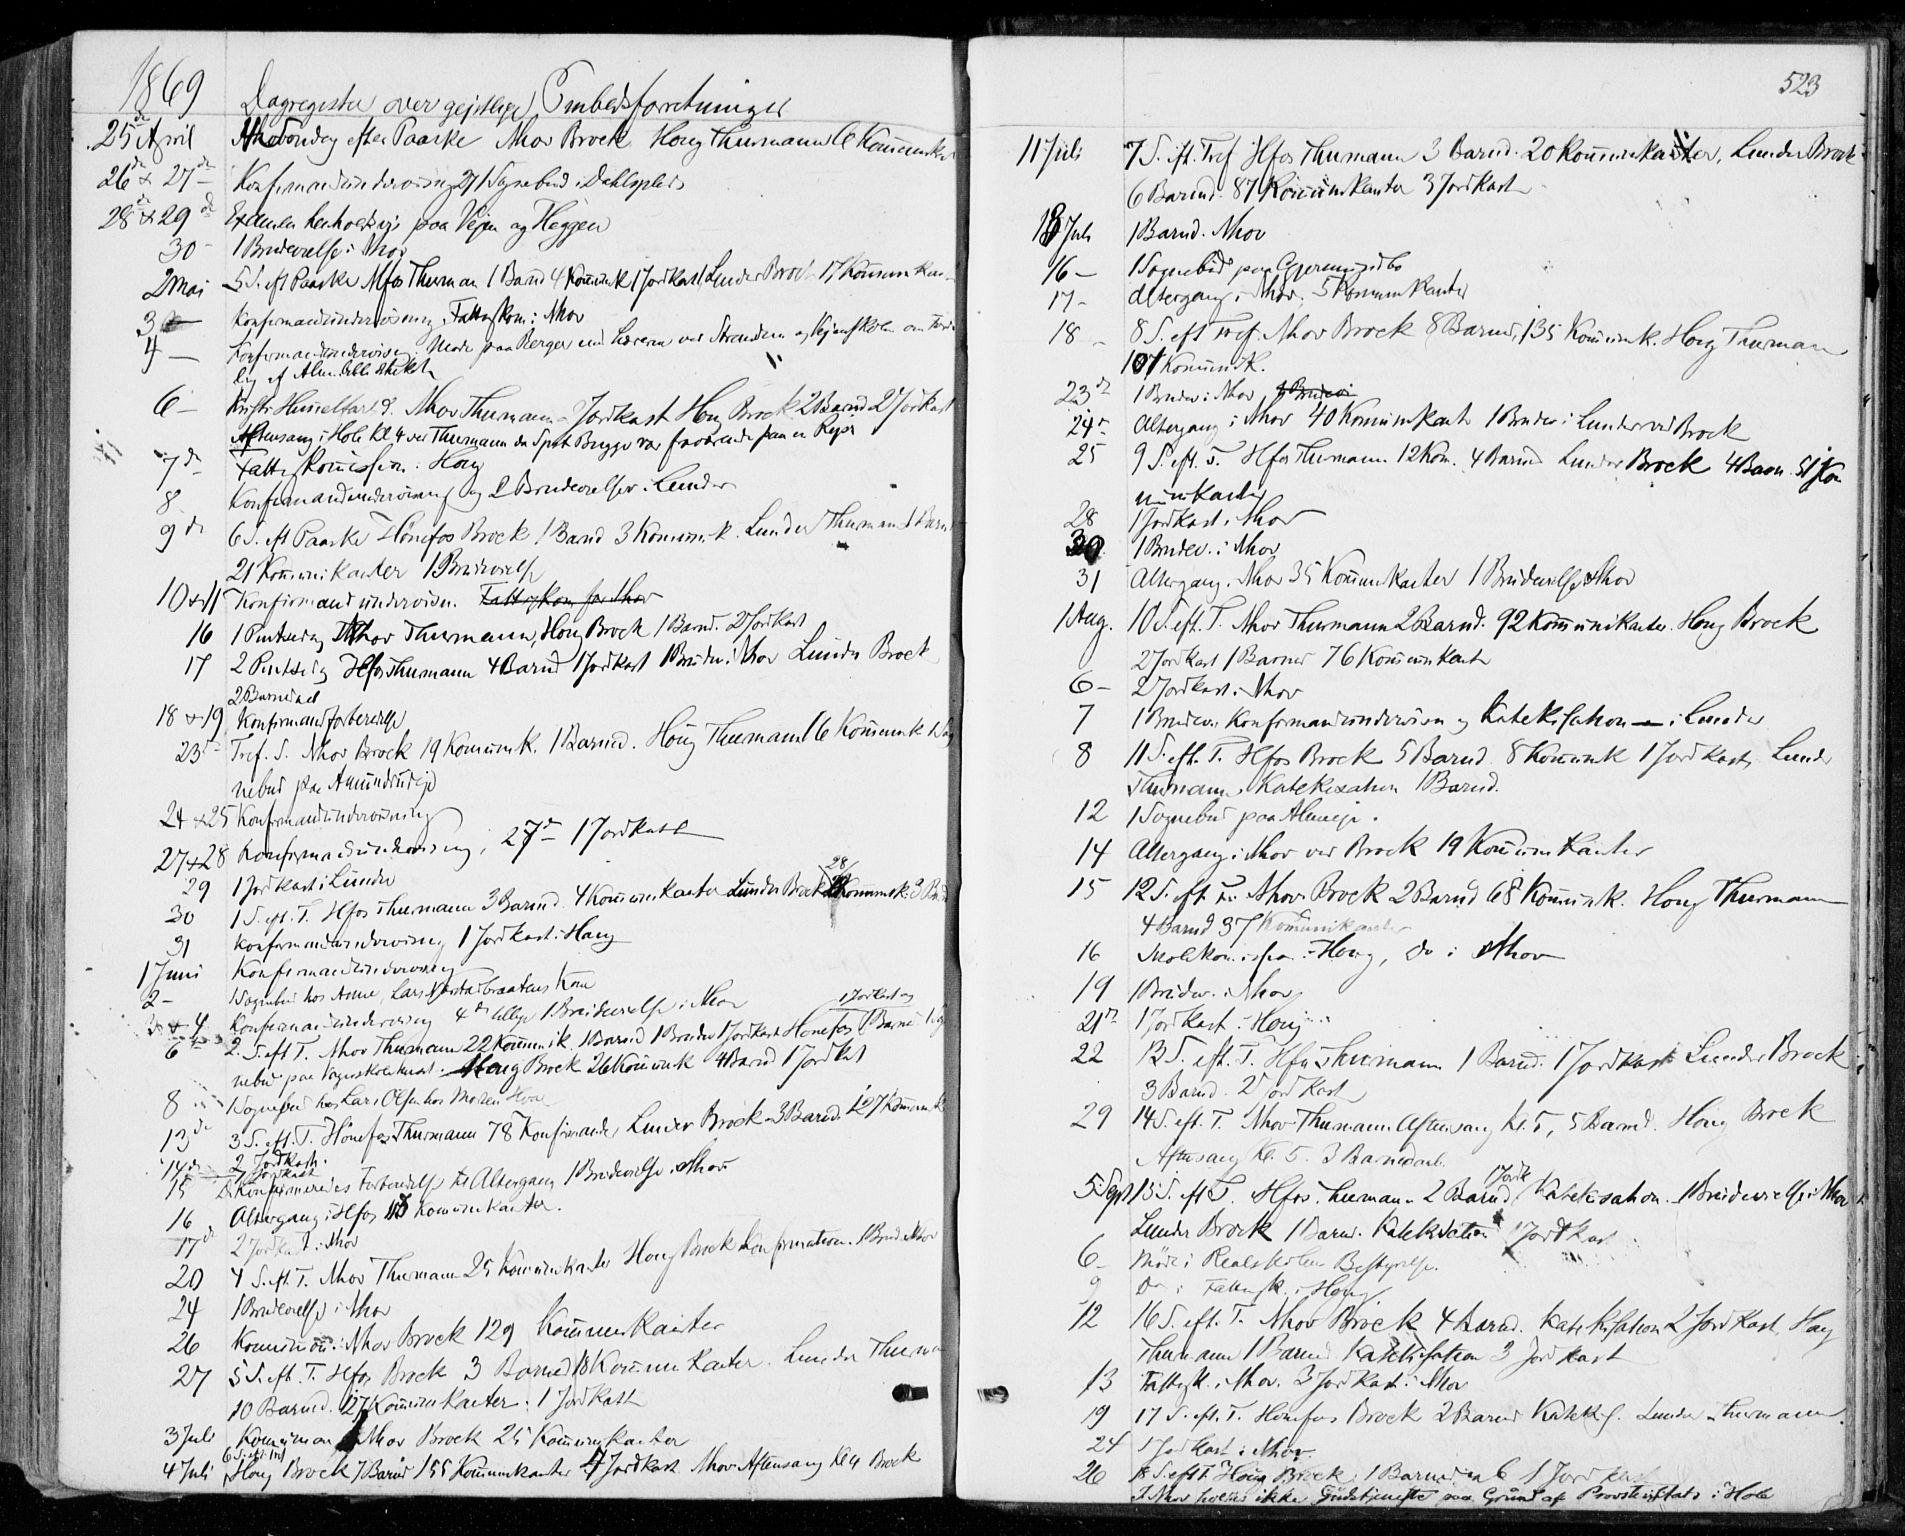 1869 Dagregister over gejstlige Embedsforretninger
25de April 4de Søndag efter Paaske Nhov Brock Houg Thurmann 6 Kommunika
26de & 27de Konfirmandundervisning 27 1 Sognebud i Dahlsplads
28de & 29de Examen henholdsvis paa Vejen og Heggen
30 – 1 Brudevielse i Nhov
2 Mai 5 S. eft Paaske Hfos Thurman 1 Barnd 4 Kommunk 1 Jordkast Lunder Brock 17 Kommunikan
3 – Konfirmandundervisning, Fattigkom: i Nhov
4 – Konfirmandundervisning. Møde paa Berger med Læreren ved Stranden og Vejenskolen om
6 – Kristi Himmelfartsd. Nhov Thurmann – Jordkast Houg Brock 2 Barnd 2 Jordkast
Aftensang i Hole Kl. 4 ved Thurmann da Sprt Brygge var fraværende paa en Rejse
7de Fattigkomission i Houg
8 Konfirmandundervisning og 2 Brudevielser i Lunder
9de 6 S. eft Paaske Hønefos Brock 1 Barnd 3 Kommunk. Lunder Thurmann 1 Barnd
21 Kommunikanter 1 Brudevielse
10 & 11 Konfirmandundervisn. Fattigkom for Nhov
16 1 Pintsedag Nhov Thurmann, Houg Brock 1 Barnd. 2 Jordkast
17 2 Pintsedag Hfos Thurmann 4 Barnd 1 Jordkast 1 Brudev. i Nhov Lunder Brock
2 Barnedaab
18 & 19 Konfirmandforberedelse
23de Tref. S. Nhov Brock 19 Kommunk. 1 Barnd. Houg Thurmann 16 Kommunk 1 Sog
nebud paa
24 & 25 Konfirmandundervisning
27 & 28 Konfirmandundervisning, 27de – 1 Jordkast
29 1 Jordkast i Lunder
28
30 1 S. eft. T. Hfos Thurmann 3 Barnd. 4 Kommunikanter Lunder Brock Kommunk. 3 Barnd
31 Konfirmandundervisning 1 Jordkast i Houg
1 Juni Konfirmandundervisning
2 – 1 Sognebud hos Anne, Lars Kone
3 & 4 Konfirmandundervisning 4de tillige 1 Brudevielse i Nhov
1 Jordkast og
6te 2. S. eft T. Nhov Thurmann 22 Kommunik. 1 Barnd 1 Brudev 1 Jordkast Hønefos 1 Barnd 1 Sog
nebud paa Houg Brock 26 Kommunk 4 Barnd 1 Jordkst
8 1 Sognebud hos Lars Olsen hos
13de 3 S. eft. T. Hønefos Thurmann 78 Konfirmander, Lunder Brock 3 Barnd. 127 Kommunk
14de 2 Jordkast.
1 Jordkast
15 De Konfirmeredes Forberedelse til Altergang 1 Brudevielse i Nhov
16 Altergang i Hfos Kommunikanter.
17de 2 Jordkast i Nhov
20 4 S. eft. T. Nhov Thurmann 25 Kommunikanter Houg Brock Konfirmation. 1 Brud. Nhov
24 1 Brudevielse i Nhov
26 Kommunion i Nhov Brock 129 Kommunikanter
27 5 S. eft. T. Hfos Brock 3 Barnd 18 Kommunikanter. Lunder Thurma
10 Barnd. 127 Kommunikanter. 1 Jordkast
3 Juli Kommunion i Nhov Brock 25 Kommunikanter
6 S. eft. Tref
4 Juli Houg Brock 7 Barnd 155 Kommunikanter 7 Jordkast Nhov Aftensang Kl 4 Brock
523
11 Juli 7 S. eft. Tref Hfos Thurmann 3 Barnd. 20 Kommunikanter, Lunder Brock
6 Barnd. 87 Kommunikanter 3 Jordkast
13 Juli 1 Barnd. Nhov
16 – 1 Sognebud paa Gjermundbo
17 – Altergang i Nhov. 5 Kommunikanter
18 – 8 S. eft Tref. Nhov Brock 8 Barnd, 135 Kommunk. Houg Thurmann
101 Kommunik.
23de 1 Brudev. i Nhov 1 Brudev
24de Altergang i Nhov 40 Kommunikant 1 Brudev. i Lunder ved Brock
25 9 S. eft. T. Hfos Thurmann 12 Kom. 4 Barnd Lunder Brock 4 Barn. 51 Kom
munikanter
28 1 Jordkast i Nhov
30. 1 Brudev. i Nhov
31 Altergang. Nhov 35 Kommunikanter 1 Brudevielse Nhov
1 Aug. 10 S. eft. T. Nhov Thurmann 2 Barnd. 92 Kommunikanter. Houg Brock
2 Jordkast 1 Barned 76 Kommunikant
6 – 2 Jordkast i Nhov
7 1 Brudev. Konfirmandundervisn og Katekisation – i Lunder
8 11 S. eft. T. Hfos Brock 5 Barnd. 8 Kommunk 1 Jordkast, Lunder
Thurmann Katekisation 1 Barnd.
12 1 Sognebud paa
14 Altergang i Nhov ved Brock 19 Kommunikanter
15 12 S. eft T. Nhov Brock 2 Barnd 68 Kommunk. Houg Thurmann
4 Barnd 37 Kommunikanter
16 Skolekomission i Houg, do i Nhov
19 1 Brudev. i Nhov
21de 1 Jordkast i Houg
22 13 S. eft. T. Hfos Thurmann 1 Barnd. 1 Jordkast Lunder Brock
3 Barnd. 2 Jordkast
29 14 S. eft. T. Nhov Thurmann Aftensang Kl. 5, 5 Barnd. Houg Brock
Aftensang Kl. 5. 3 Barnedaab.
1 Jordk
5 Sept 15 S. eft T. Hfos. Thurmann 2 Barnd, Katekisation. 1 Brudevielse i Nhov
Lunder Brock 1 Barnd. Katekisation 1 Jordkast
6 – Møde i Realskolens Bestyrelse.
9 Do i Fattigk. i Houg
12 16 S. eft. T. Nhov Brock 4 Barnd. Katekisation 2 Jordkast, Houg
Thurmann 1 Barnd Katekisation 3 Jordkast
13 Fattigk. i Nhov. 3 Jordkast i Nhov
19 17 S. eft. T. Hønefos Brock 2 Barnd Katekis. Lunder Thurmann.
24 1 Jordkast i Nhov.
26 18 S. eft T. Houg Brock. 1 Barnedaab 1 Jordkast
I Nhov holdtes ikke Gudstjeneste paa Grund af i Hole